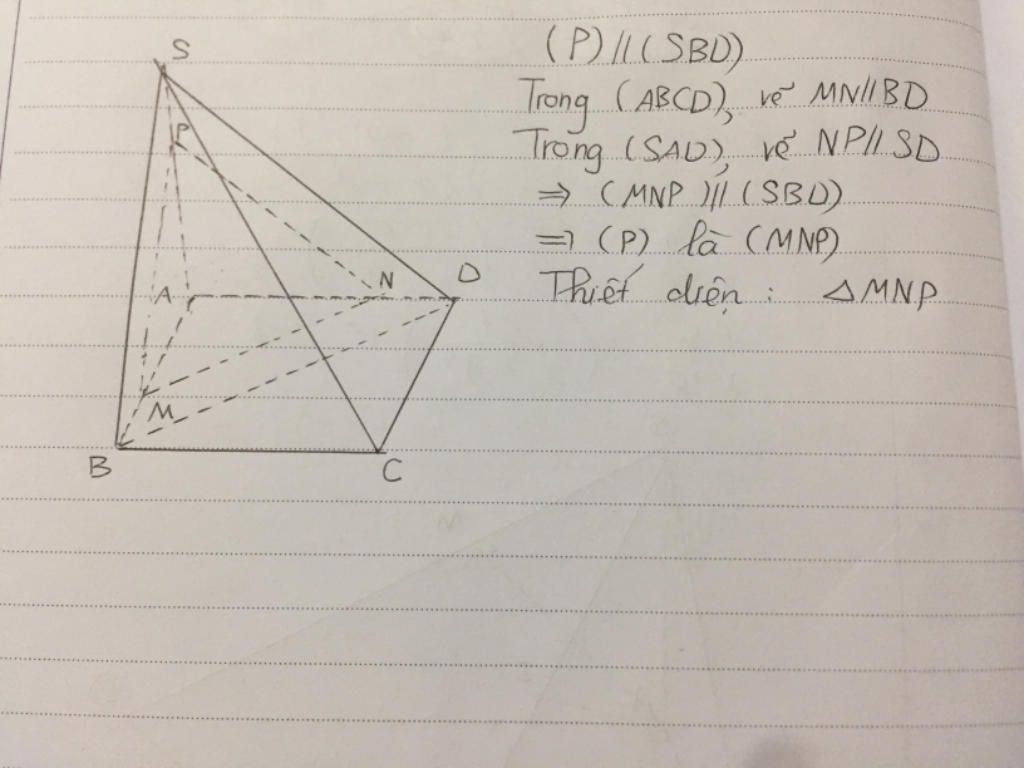 S
P
A
N
D
M
B
C
(P)//(SBD)
Trong (ABCD), vẽ MN//BD
Trong (SAD), vẽ NP//SD
⇒ (MNP)//(SBD)
⇒ (P) là (MNP)
Thiết diện: ΔMNP